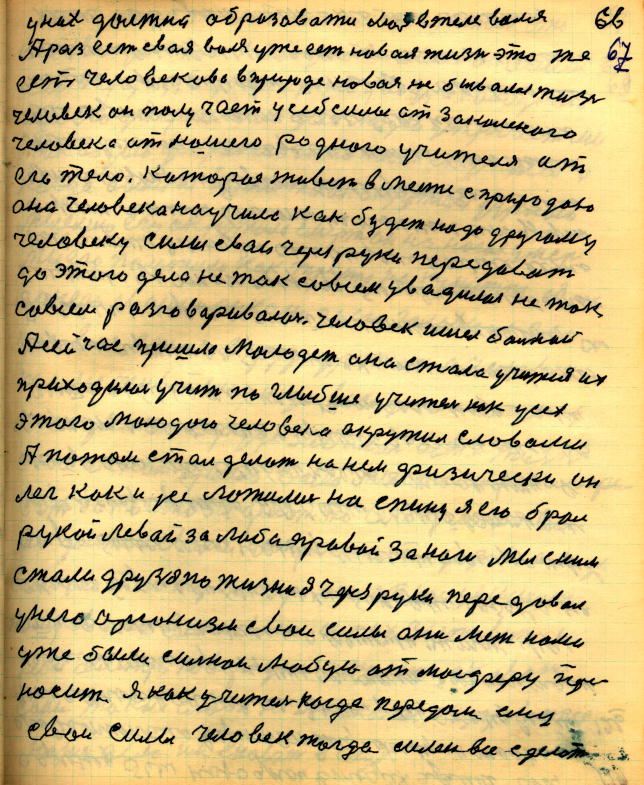 66
у них должна образовати своя в теле воля
67
А раз ест своя воля уже ест новая жизн это же
ест человекова в природе новая не бывалая жизн
человек он получает у себе силы от Закаленого
человека от нашего родного учителя от
его тело. Которая живет в месте с природаю
она человека научила как будет надо другому
человеку силы сваи через руки передават
до этого дела не так совсем увадилос не так
совсем разговаривалос. Человек ишел болной
А сейчас пришла молодеж она стала учится их
приходилос учит по глыбше учител как усех
этого молодого человека окружил словами
А потом стал делат на нем физически он
лег как и усе ложилис на спину я его брал
рукой левай за лоб а правой за ноги Мы с ним
стали друзя по жизни я через руки передовал
у него организм свои силы они меж нами
уже были силнои любую атмосферу при-
носит. Я как учител когда передам ему
свои силы человек тогда силен все сделат